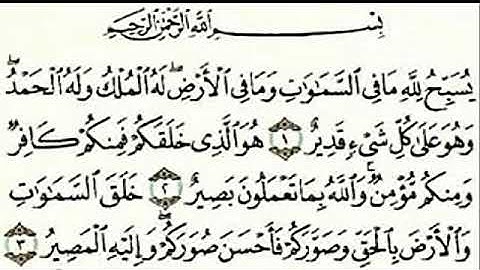 بِسْمِ اللَّهِ الرَّحْمَٰنِ الرَّحِيمِ
يُسَبِّحُ لِلَّهِ مَا فِي السَّمَاوَاتِ وَمَا فِي الْأَرْضِ ۖ لَهُ الْمُلْكُ وَلَهُ الْحَمْدُ ۖ
وَهُوَ عَلَىٰ كُلِّ شَيْءٍ قَدِيرٌ ١ هُوَ الَّذِي خَلَقَكُمْ فَمِنكُمْ كَافِرٌ
وَمِنكُم مُّؤْمِنٌ ۚ وَاللَّهُ بِمَا تَعْمَلُونَ بَصِيرٌ ٢ خَلَقَ السَّمَاوَاتِ
وَالْأَرْضَ بِالْحَقِّ وَصَوَّرَكُمْ فَأَحْسَنَ صُوَرَكُمْ ۖ وَإِلَيْهِ الْمَصِيرُ ٣